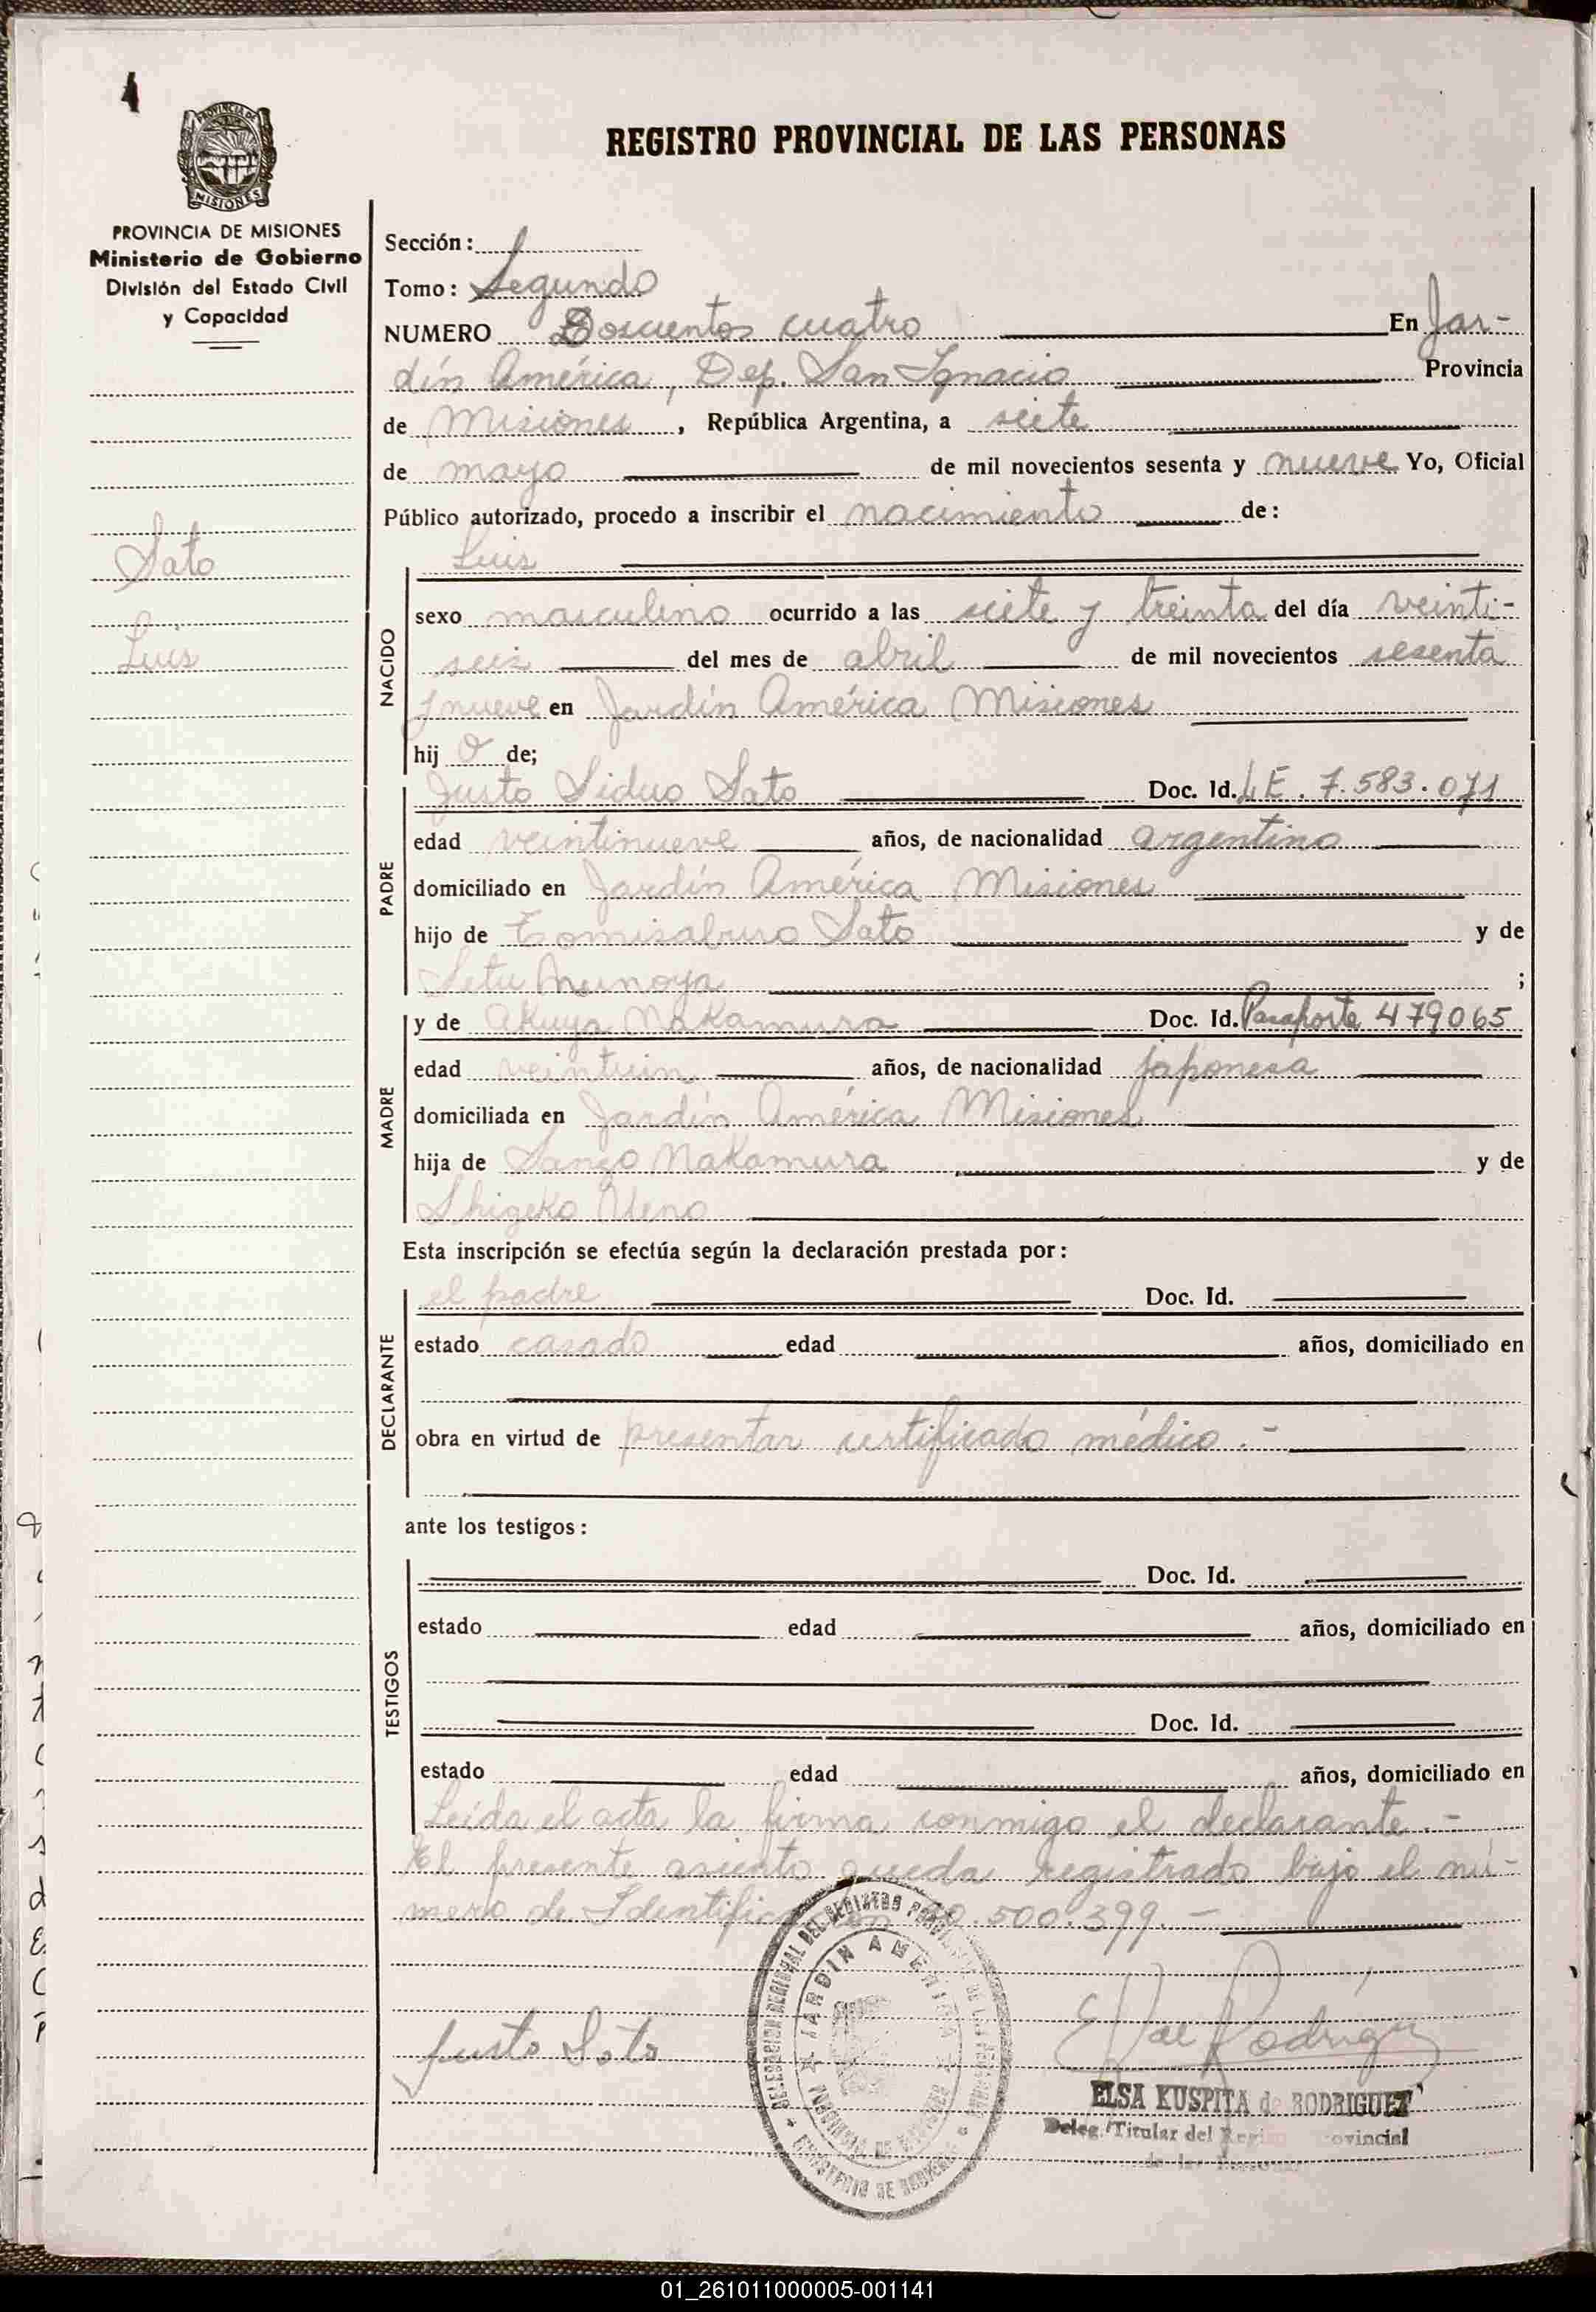 REGISTRO PROVINCIAL DE LAS PERSONAS
PROVINCIA DE
MISIONES
PROVINCIA DE MISIONES
Ministerio de Gobierno
División del Estado Civil
y Capacidad
Sato
Luis
Sección: 1
Tomo: Segundo
NUMERO Doscientos cuatro En Jar-
dín América, Dep. San Ignacio Provincia
de Misiones, República Argentina, a siete
de mayo de mil novecientos sesenta y nueve Yo, Oficial
Público autorizado, procedo a inscribir el nacimiento de:
Luis
NACIDO
sexo masculino ocurrido a las siete y treinta del día veinti-
seis del mes de abril de mil novecientos sesenta
y nueve en Jardín América Misiones
hij o de;
PADRE
Justo Siduo Sato Doc. Id. LE. 7.583.071
edad veintinueve años, de nacionalidad argentino
domiciliado en Jardín América Misiones
hijo de Tomisaburo Sato y de
Setu ;
MADRE
y de Akuya Nakamura Doc. Id. Pasaporte 479065
edad veintiun años, de nacionalidad japonesa
domiciliada en Jardín América Misiones
hija de Sango Nakamura y de
Shigeko Ueno
Esta inscripción se efectúa según la declaración prestada por:
DECLARANTE
el padre Doc. Id.
estado casado edad años, domiciliado en
obra en virtud de presentar certificado médico.-
ante los testigos:
TESTIGOS
Doc. Id.
estado edad años, domiciliado en
Doc. Id.
estado edad años, domiciliado en
Leída el acta la firma conmigo el declarante.-
El presente asiento queda registrado bajo el nú-
mero de 500.399.-
DELEGACION REGIONAL DEL REGISTRO PROVINCIAL DE LAS PERSONAS
JARDIN AMERICA
PROVINCIA DE MISIONES
MINISTERIO DE GOBIERNO
Justo Sato
E K de Rodriguez
ELSA KUSPITA de RODRIGUEZ
Deleg. Titular del Registro Provincial
de las Personas
01_261011000005-001141